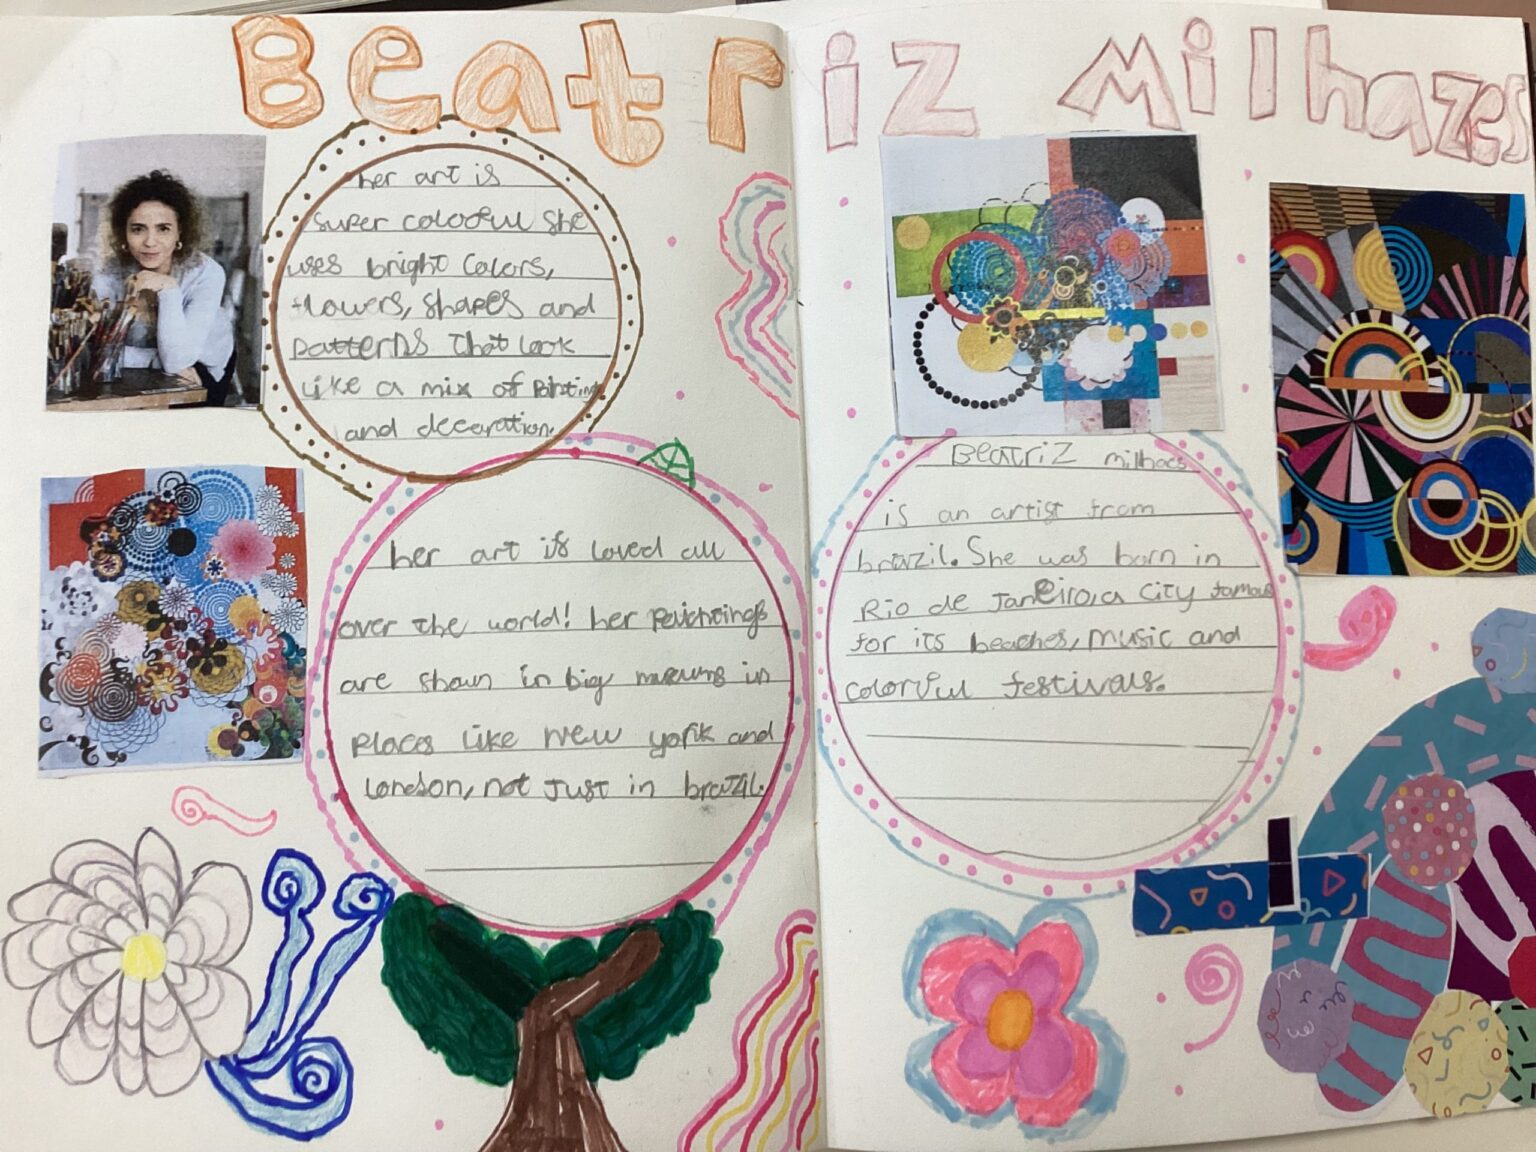 Beatriz Milhazes
her art is
super colorful she
uses bright colors,
flowers, shapes and
patterns that look
like a mix of
and decoration.
her art is loved all
over the world! her
are shown in big museums in
places like New york and
London, not just in brazil.
BeatriZ milhaes
is an artist from
brazil. She was born in
Rio de Janeiro, a city famous
for its beaches, music and
colorful festivals.